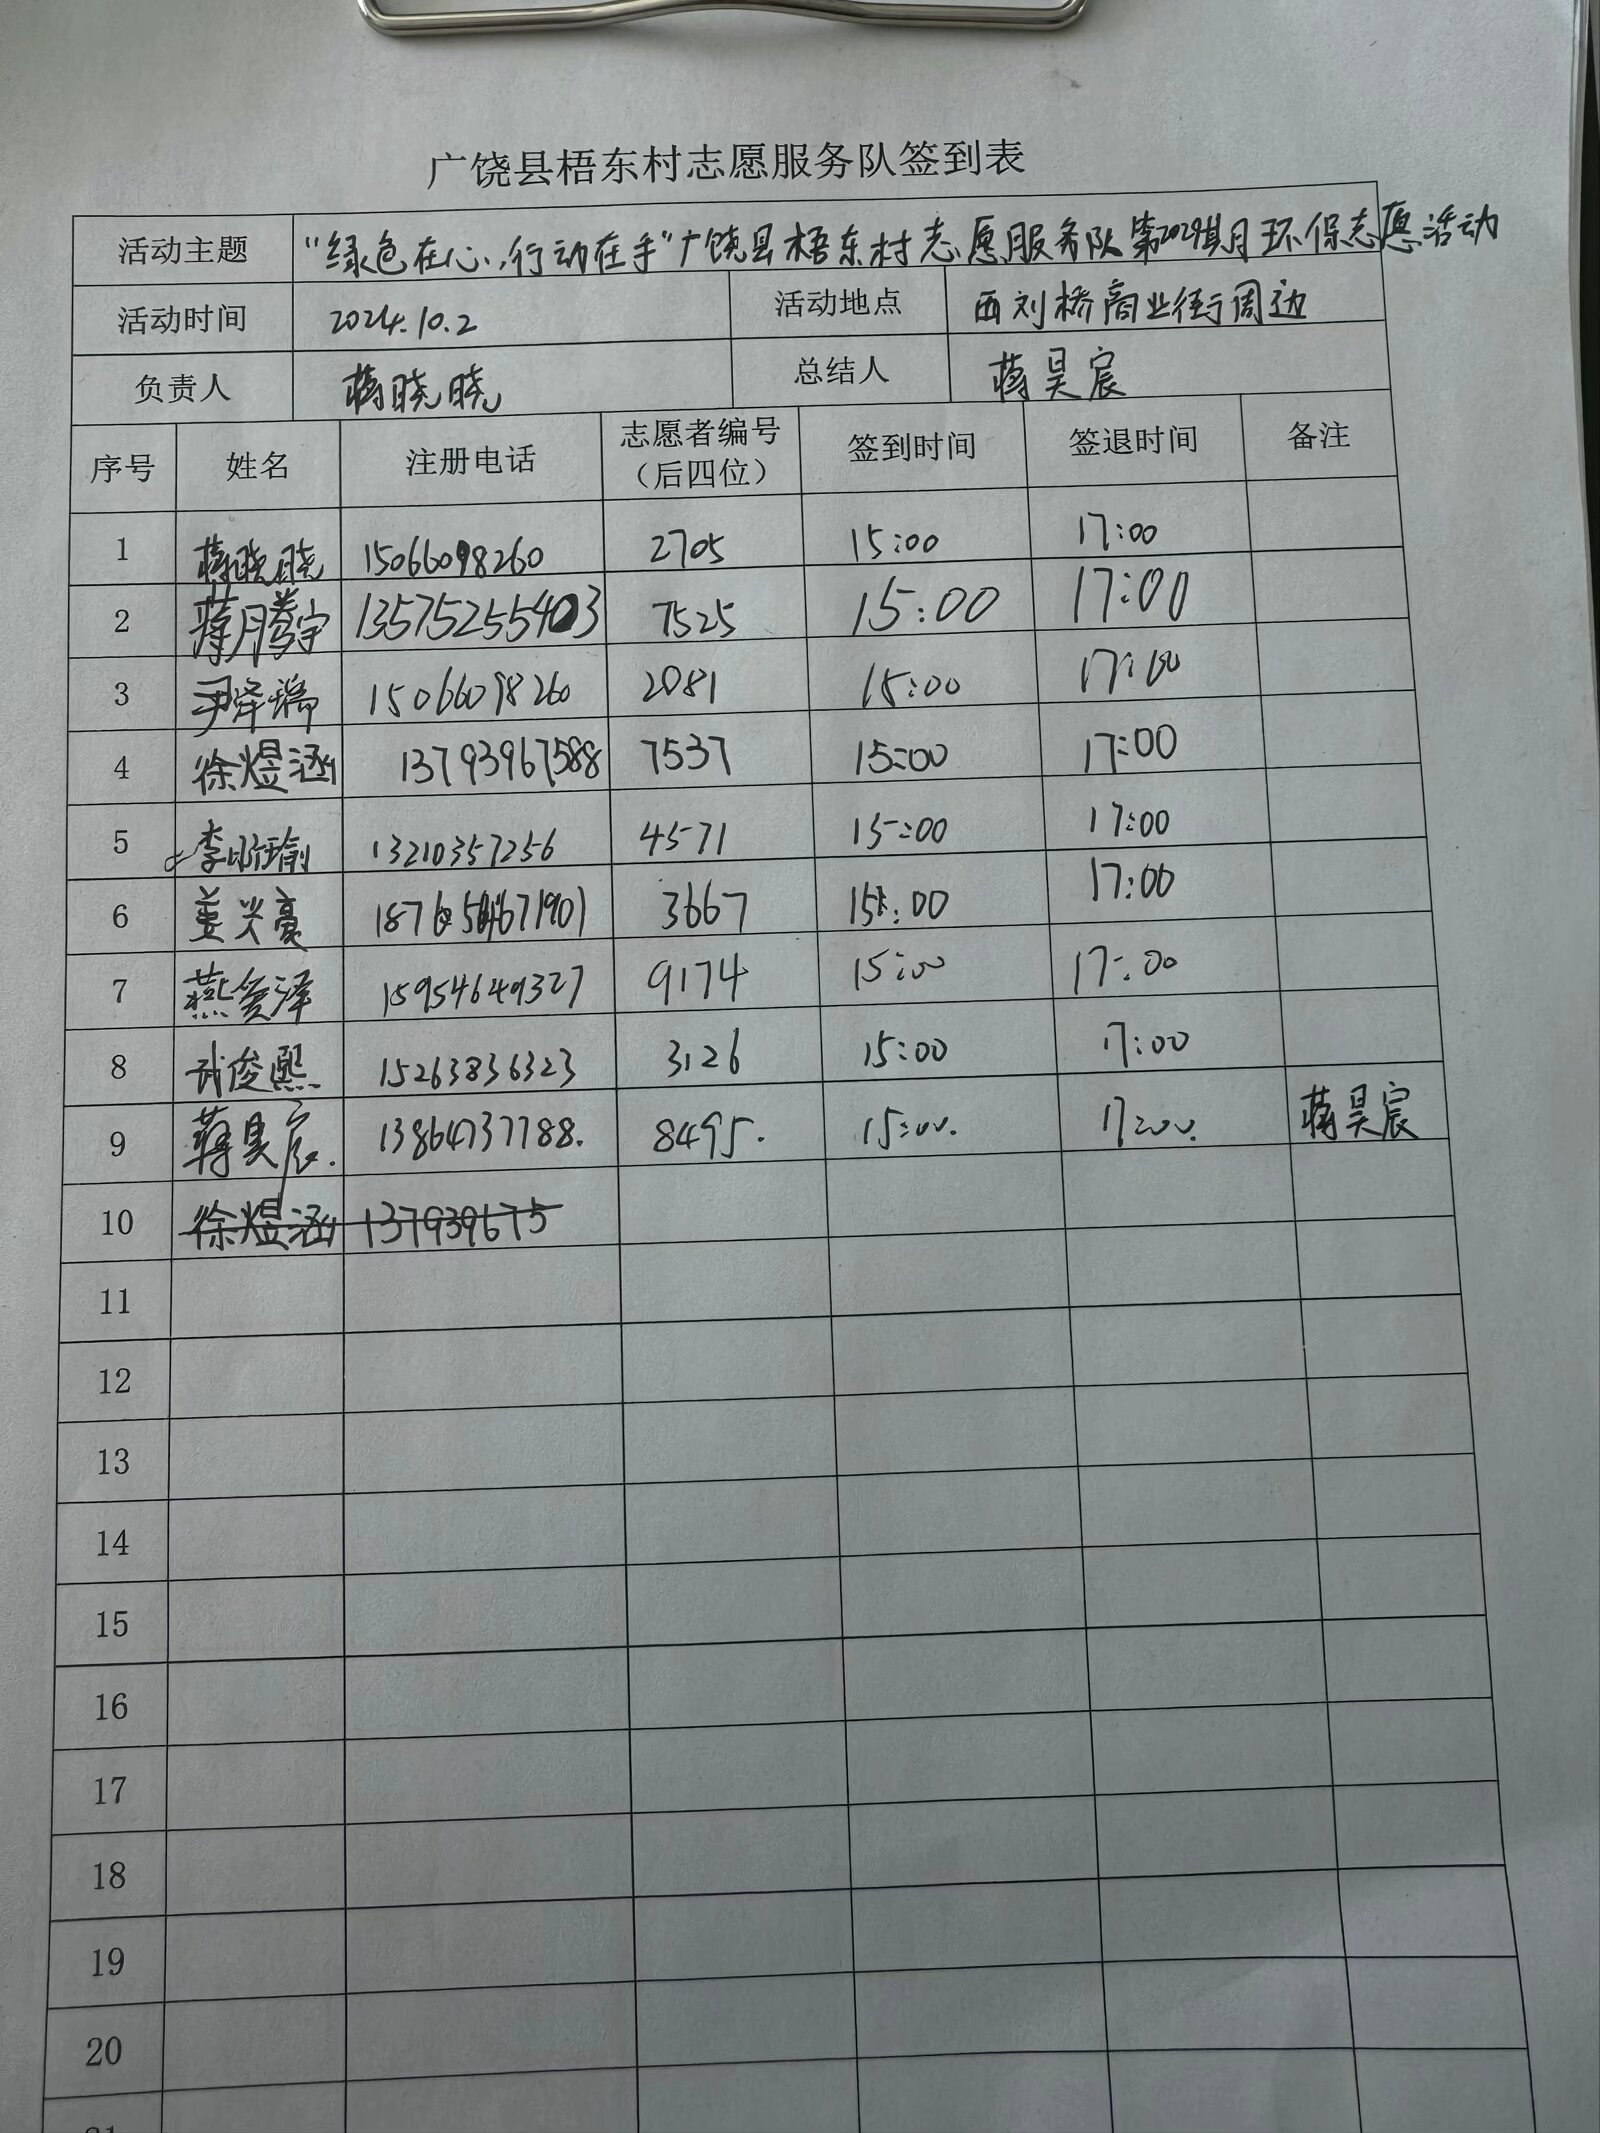 广饶县梧东村志愿服务队签到表
活动主题 "绿色在心,行动在手"广饶县梧东村志愿服务队第2029期月环保志愿活动
活动时间 2024.10.2 活动地点 西刘桥商业街周边
负责人 蒋晓晓 总结人 蒋昊宸
序号 姓名 注册电话 志愿者编号（后四位） 签到时间 签退时间 备注
1 蒋晓晓 15066098260 2705 15:00 17:00
2 蒋腾宇 13575255403 7525 15:00 17:00
3 尹泽瑞 15066098260 2081 15:00 17:00
4 徐煜涵 13793967588 7537 15:00 17:00
5 李 瑜 13210357256 4571 15:00 17:00
6 姜兴亮 3667 15:00 17:00
7 燕奕泽 15954649327 9174 15:00 17:00
8 武俊熙 15263836323 3126 15:00 17:00
9 蒋昊宸. 13864737788. 8495. 15:00. 17:00. 蒋昊宸
10 徐煜涵 137939675
11
12
13
14
15
16
17
18
19
20